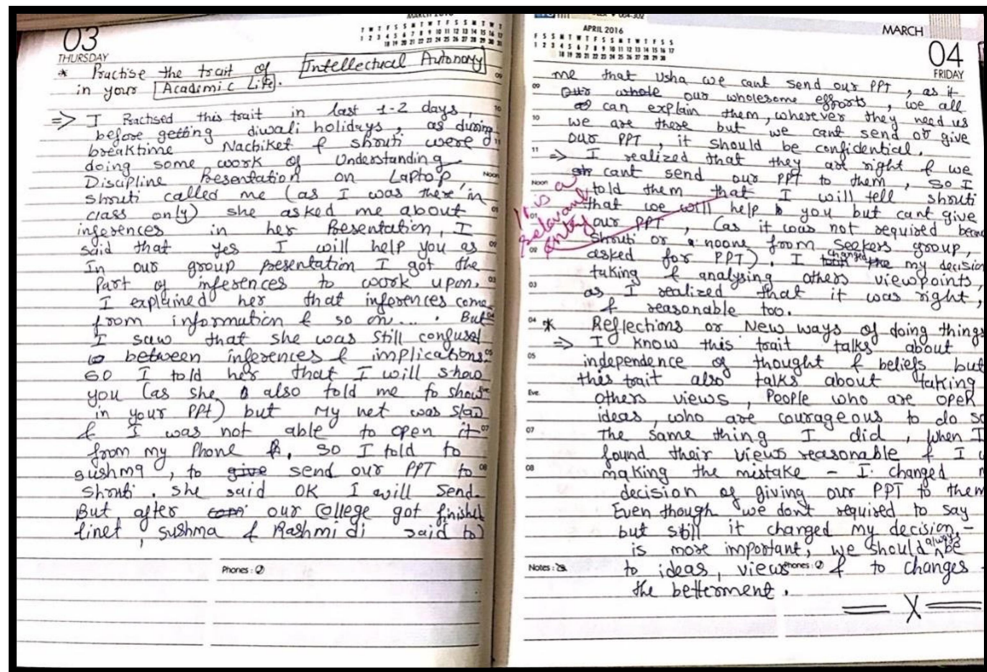 03
THURSDAY
* Practise the trait of Intellectual Autonomy
in your Academic Life.
=> I Practised this trait in last 1-2 days,
before getting diwali holidays, as during
breaktime Nachiket & shruti were
doing some work of Understanding
Discipline Presentation on Laptop
shruti called me (as I was there in
class only) she asked me about
inferences in her Presentation, I
said that yes I will help you as
In our group presentation I got the
Part of inferences to work upon.
I explained her that inferences come
from information & so on.... But
I saw that she was still confused
between inferences & implications
so I told her that I will show
you (as she also told me to show
in your PPt) but my net was slow
& I was not able to open it
from my Phone, so I told to
sushma, to give send our PPT to
shruti. she said OK I will send.
But after our college got finished
linet, sushma & Rashmi di said to
Phones:
APRIL 2016
MARCH
04
FRIDAY
me that Usha we cant send our PPT, as it
our whole our wholesome efforts, we all
can explain them, wherever they need us
we are there but we cant send or give
our PPT, it should be confidential.
=> I realized that they are right & we
cant send our PPT to them, so I
told them that I will tell shruti
that we will help you but cant give
our PPT, (as it was not required
shruti or noone from Seekers group,
asked for PPT). I changed my decision
taking & analysing others viewpoints,
as I realized that it was right,
& reasonable too.
It is a relevant entry
* Reflections or New ways of doing things
=> I know this trait talks about
independence of thought & beliefs but
this trait also talks about taking
others views, People who are open
ideas, who are courageous to do so
The same thing I did, when I
found their views reasonable & I
making the mistake - I changed
decision of giving our PPT to them
Even though we dont required to say
but still it changed my decision -
is more important, we should always be
to ideas, views & to changes
the betterment.
Notes:
Phones:
X